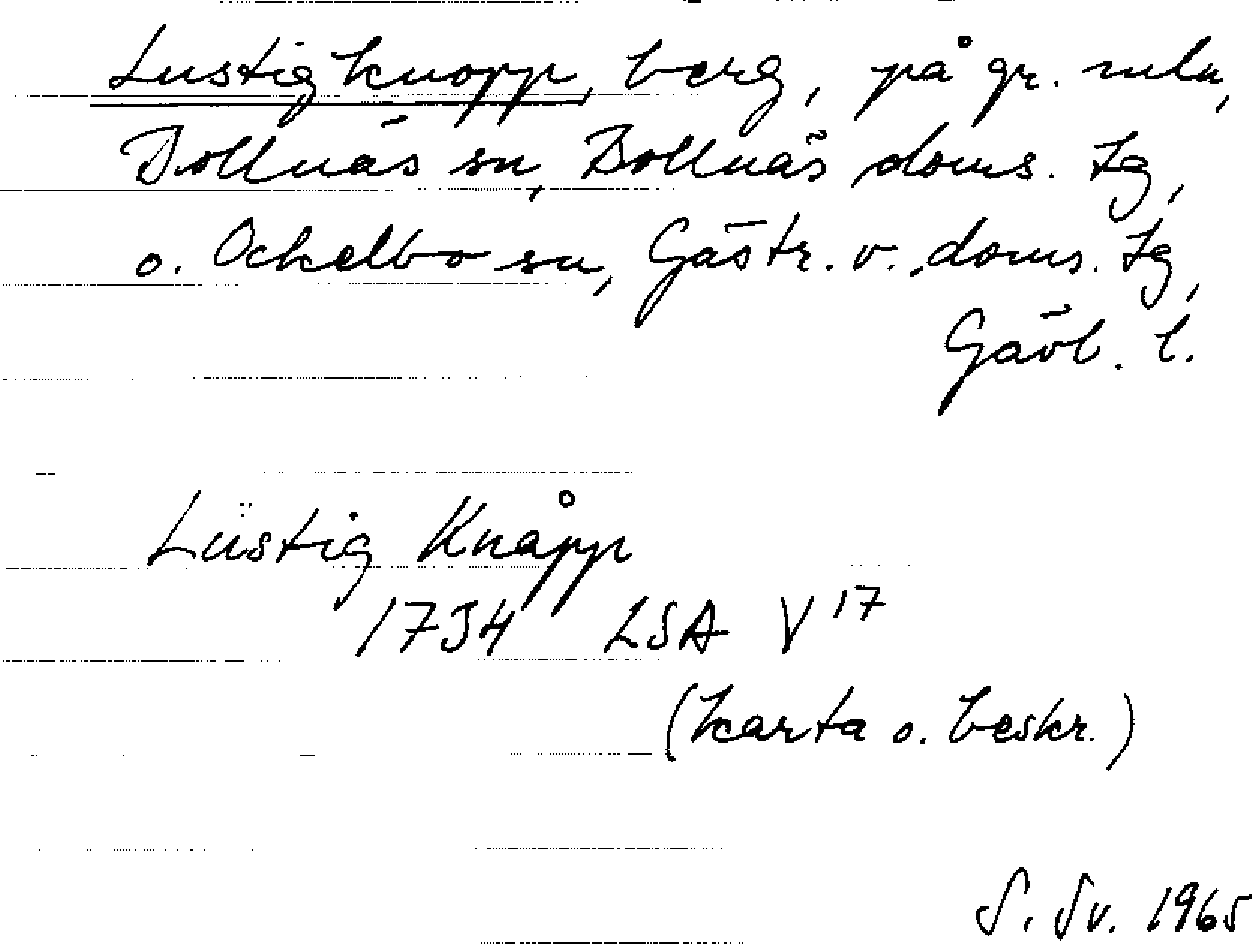 Lustigknopp, berg, på gr. mln,
Bollnäs sn, Bollnäs doms. tg,
o. Ockelbo sn, Gästr. v. doms. tg,
Gävl. l.
Lüstig Knåpp
1734 LSA V 17
(karta o. beskr.)
S. Sv. 1965